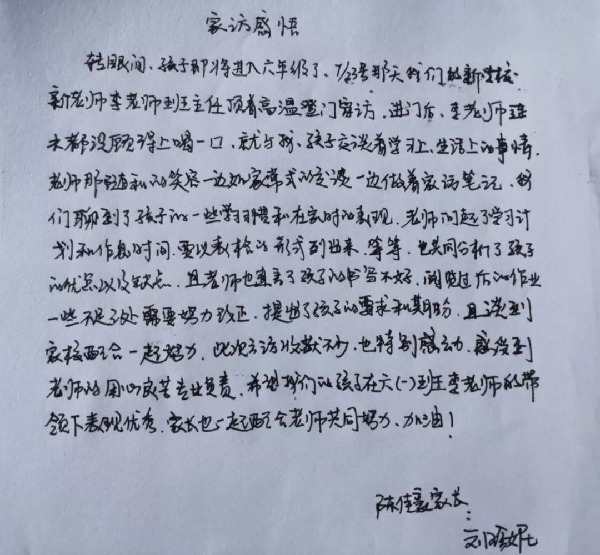 家访感悟
转眼间、孩子即将进入六年级了、7/23号那天我们的新学校
新老师李老师到班主任顶着高温登门家访、进门后、李老师连
水都没顾得上喝一口、就与我、孩子交谈着学习上、生活上的事情.
老师那温和的笑容一边如家常式的交谈一边做着家访笔记、我
们聊到了孩子的一些学习习惯和在家时的表现、老师问起了学习计
划和作息时间、要以表格的形式列出来、等等、也共同分析了孩子
的优点以及缺点、且老师也直言了孩子的书写不好、阅览过后的作业
一些不足之处需要努力改正、提出了孩子的要求和期盼、且谈到
家校配合一起努力、此次家访收获不少、也特别感动、感受到
老师的用心良苦专业负责、希望我们的孩子在六(一)班王李老师的带
领下表现优秀、家长也一起配合老师共同努力、加油!
陈佳豪家长: